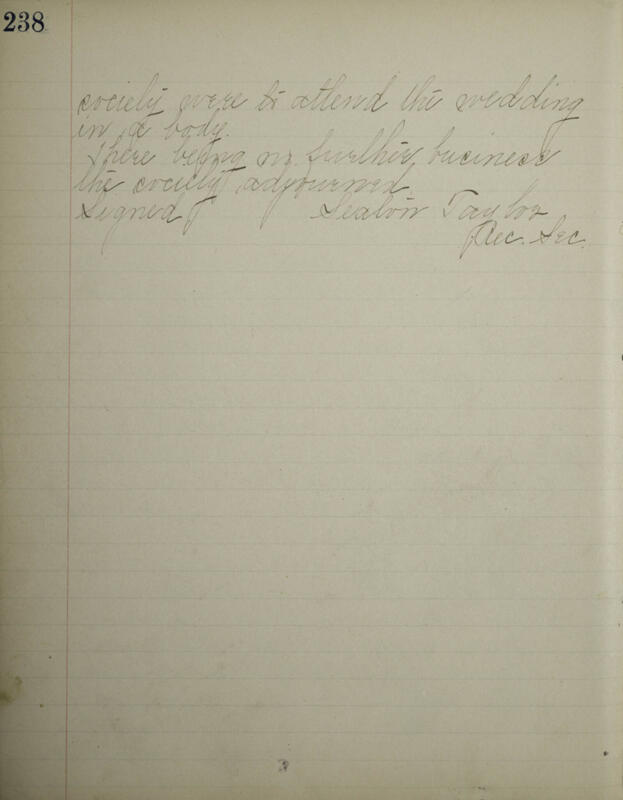 238
society were to attend the wedding
in a body.
There being no further business
the society adjourned.
Signed Seaton Taylor
Rec. Sec.